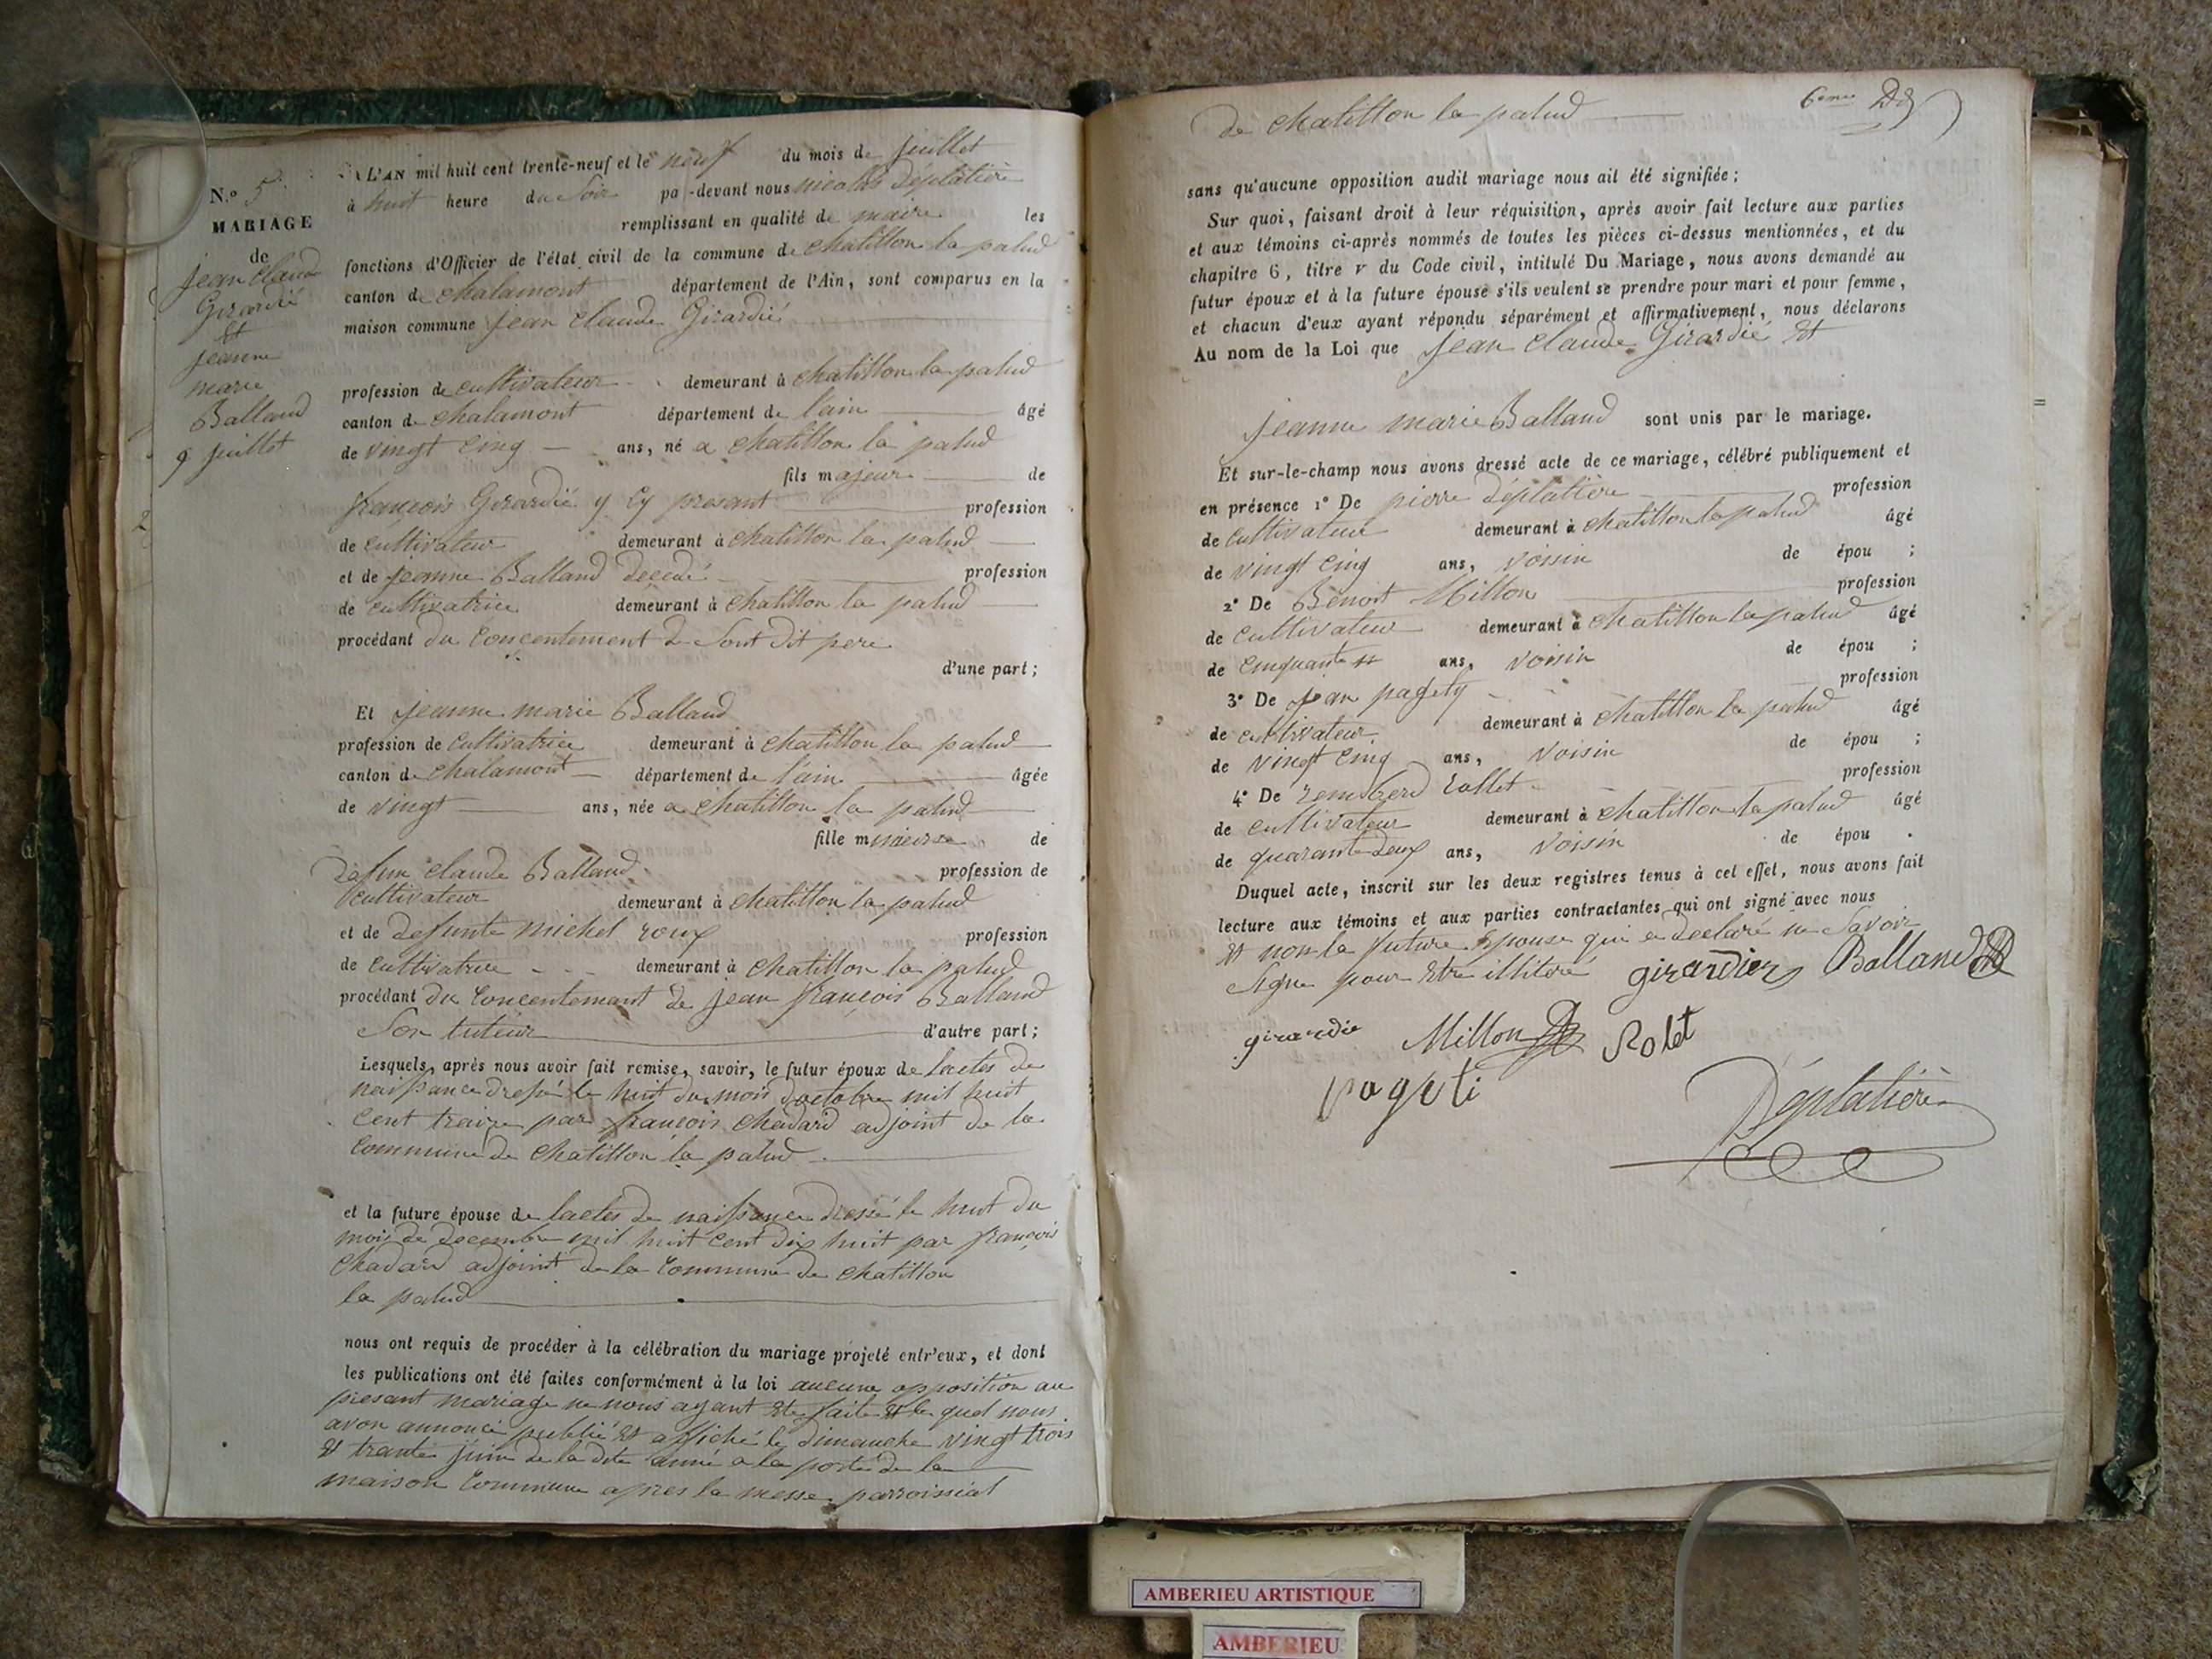 N.o 5
MARIAGE
de
jean Claude
Girardié
Et
jeanne
marie
Balland
9 juillet
L'AN mil huit cent trente-neuf et le neuf du mois de juillet
à huit heure du Soir pa -devant nous nicolas Déplatière
remplissant en qualité de maire les
fonctions d'Officier de l'état civil de la commune de chatillon la palud
canton de chalamont département de l'Ain, sont comparus en la
maison commune jean claude Girardié
profession de cultivateur demeurant à chatillon la palud
canton de chalamont département de l'ain âgé
de vingt cinq ans, né a chatillon la palud
fils majeur de
françois Girardié y Cy présant profession
de cultivateur demeurant à chatillon la palud
et de jeanne Balland decedé profession
de cultivatrice demeurant à chatillon la palud
procédant du Concentement de Sont dit pere
d'une part;
Et jeanne marie Balland
profession de cultivatrice demeurant à chatillon la palud
canton de chalamont département de l'ain âgée
de vingt ans, née a chatillon la palud
fille mineure de
defun claude Balland profession de
cultivateur demeurant à chatillon la palud
et de defunte michel roux profession
de cultivatrice demeurant à chatillon la palud
procédant du Concentemant de jean françois Balland
Son tuteur d'autre part;
Lesquels, après nous avoir fait remise, savoir, le futur époux de lactes de
naissance dressé le huit du mois doctobre mil huit
cent traize par françois chadard adjoint de la
commune de chatillon la palud
et la future épouse de lactes de naissance dressé le huit du
mois de decembre mil huit cent dix huit par françois
chadard adjoint de la Commune de chatillon
la palud
nous ont requis de procéder à la célébration du mariage projeté entr'eux, et dont
les publications ont été faites conformément à la loi aucune opposition au
presant mariage ne nous ayant ete faite et le quel nous
avon annoncé publié et affiché le dimanche vingt trois
et trante juin de la dite anné a la porte de la
maison Commune apres la messe parroissial
de chatillon la palud
6eme
sans qu'aucune opposition audit mariage nous ait été signifiée;
Sur quoi, faisant droit à leur réquisition, après avoir fait lecture aux parties
et aux témoins ci-après nommés de toutes les pièces ci-dessus mentionnées, et du
chapitre 6, titre v du Code civil, intitulé Du Mariage, nous avons demandé au
futur époux et à la future épouse s'ils veulent se prendre pour mari et pour femme,
et chacun d'eux ayant répondu séparément et affirmativement, nous déclarons
Au nom de la Loi que jean claude Girardié et
jeanne marie Balland sont unis par le mariage.
Et sur-le-champ nous avons dressé acte de ce mariage, célébré publiquement et
en présence 1° De pierre Déplatière profession
de cultivateur demeurant à chatillon la palud âgé
de vingt cinq ans, voisin de épou ;
2° De Benoit Millon profession
de cultivateur demeurant à chatillon la palud âgé
de cinquante ans, voisin de épou ;
3° De jean pagety profession
de cultivateur demeurant à chatillon la palud âgé
de vingt cinq ans, voisin de épou ;
4° De profession
de cultivateur demeurant à chatillon la palud âgé
de quarante deux ans, voisin de épou .
Duquel acte, inscrit sur les deux registres tenus à cet effet, nous avons fait
lecture aux témoins et aux parties contractantes qui ont signé avec nous
et non la future Epouse qui a declaré ne Savoir
Signe pour etre illiteré girardier Balland
girardie Millon Rolet
pageti
Déplatière
AMBERIEU ARTISTIQUE
AMBERIEU